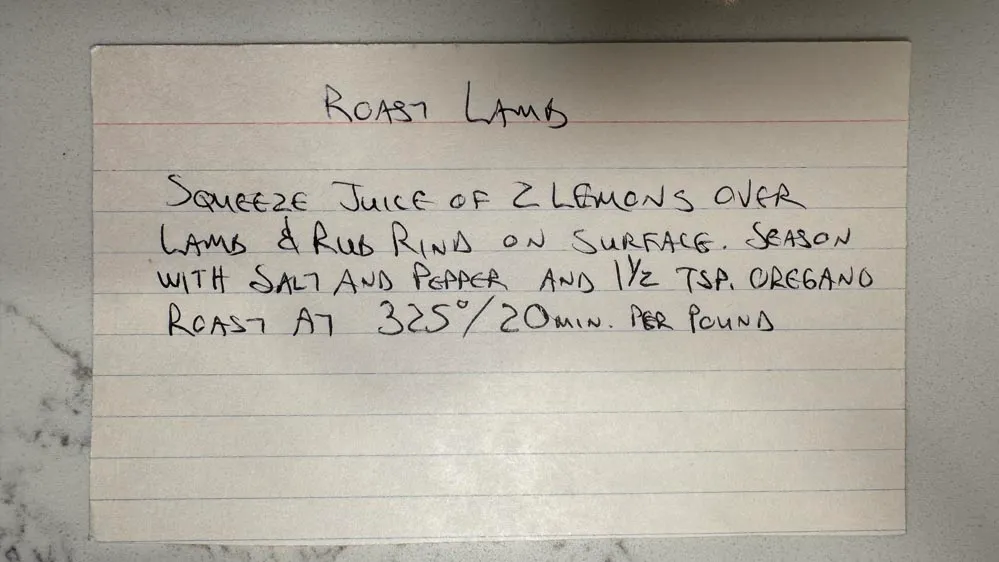 ROAST LAMB
SQUEEZE JUICE OF 2 LEMONS OVER
LAMB & RUB RIND ON SURFACE. SEASON
WITH SALT AND PEPPER AND 1 1/2 TSP. OREGANO
ROAST AT 325°/20 MIN. PER POUND